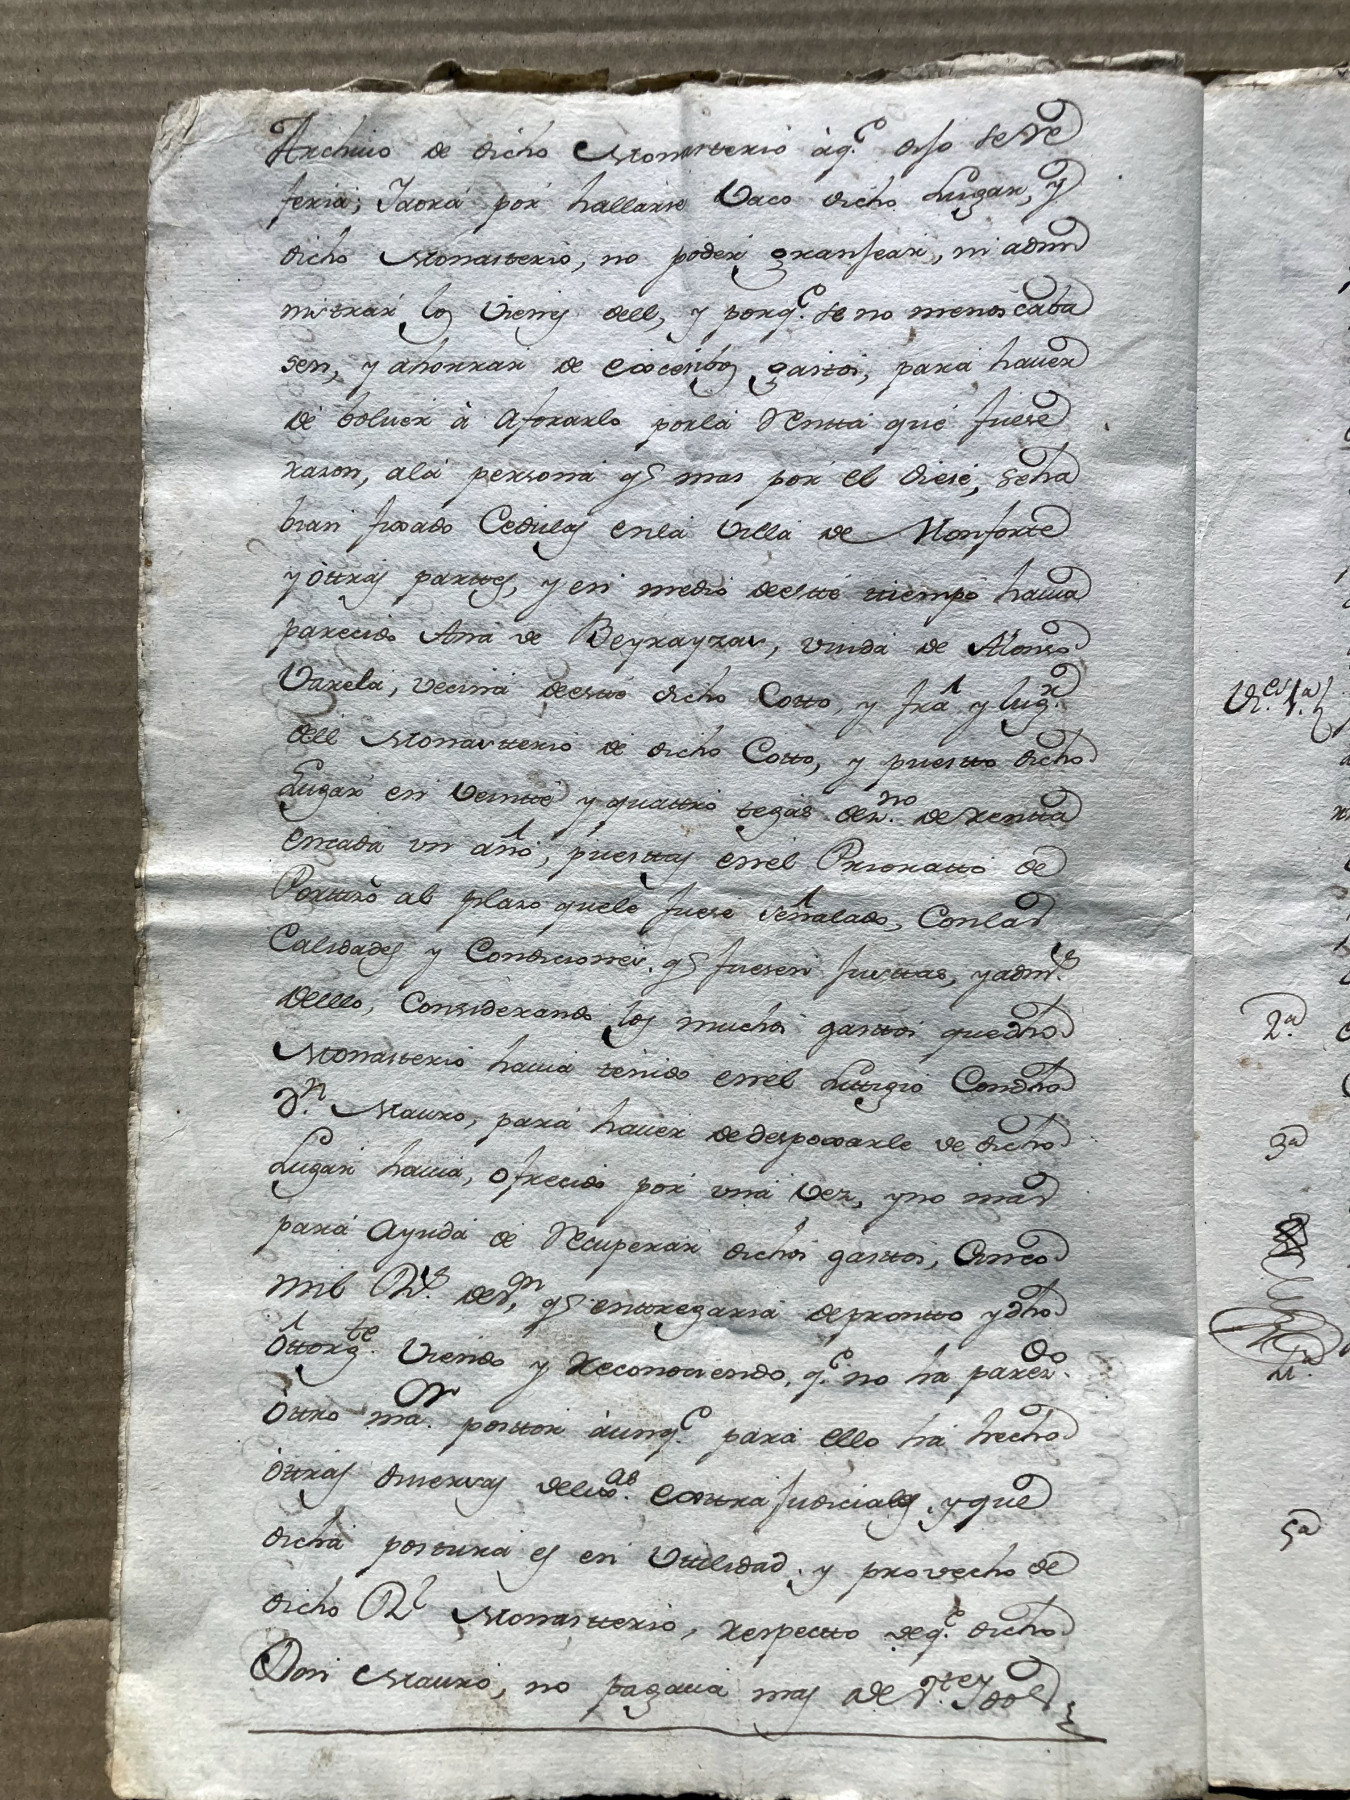 Archiuo de dicho Monasterio àq.e dijo se Re
feria; Jaora por hallarse Vaco dicho Lugar, y
dicho Monasterio, no poder granjear, ni admi
nistrar los Vienes dell, y porq.e se no menoscaba
sen, y ahorrar de excesibos gastos, para hauer
de bolver à aforarlo porla Rentta que fuese
razon, ala persona q.e mas por el diese, seha
bian fixado Cedulas enla Villa de Monforte
y òttras parttes, y en medio deestte ttiempo hauia
parecido Ana de Beyrayzas, viuda de Alonso
Varela, vecina deestte dicho Cotto, y fra y lug.r
dell Monastterio de dicho Cotto, y puestto dicho
Lugar en Veintte y quattro tegas dez.no de Rentta
encada un año, puesttas enel Prioratto de
Porttro al plazo quele fuese señalado, Conlas
Calidades y Condiciones q.e fuesen justtas, yadm.s
Dello, Considerando los muchos gasttos quedho
Monasterio hauia tenido enel Littigio Condho
D.n Mauro, para hauer dedespoxarle de dicho
Lugar hauia, Ofrecido por una Vez, yno mas
para Ayuda de Recuperar dichos gasttos, Cinco
mil R.s deV.on q.e enttregaria depromtto ydho
Òttorg.te Viendo y Reconociendo, q.e no ha parez.do
Òttro ma.or posttor àunq.e para ello ha hecho
òttras diuersas delix.as exttrajudiciales, y que
dicha postura es en Uttilidad, y provecho de
dicho R.l Monastterio, respectto deq.e dicho
Don Mauro, no pagaua mas de
Vr.es 1.a
2.a
3a
4.a
5a